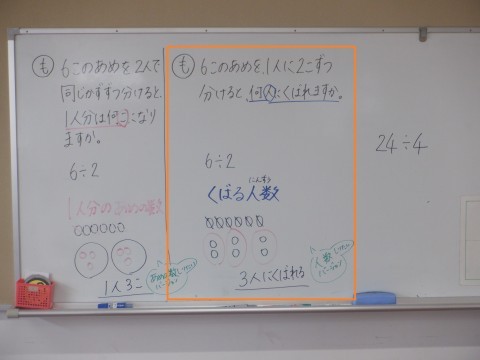 も 6このあめを2人で
同じかずずつ分けると、
1人分は何こになり
ますか。
6÷2
1人分のあめの数
1人3こ
も 6このあめを、1人に2こずつ
分けると、何人にくばれますか。
6÷2
にんずう
くばる人数
3人にくばれる
人数
バージョン
24÷4